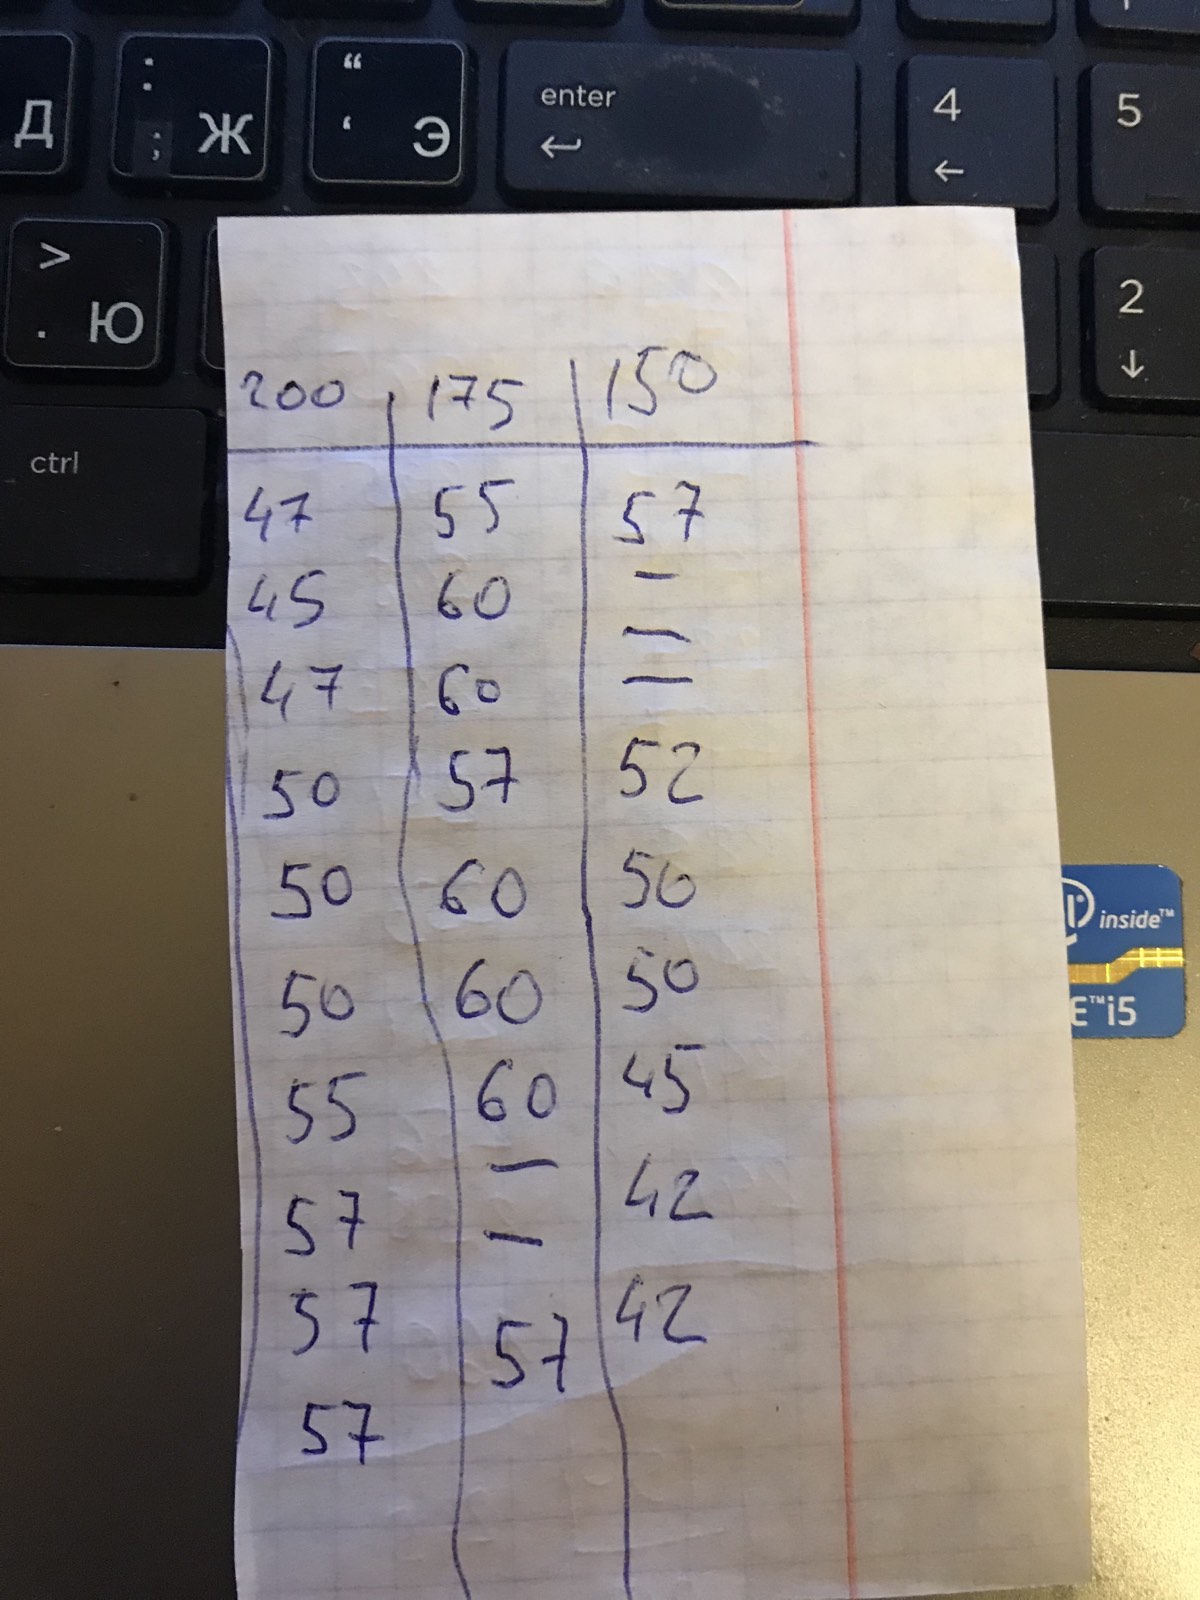 Д : ; Ж “ ‘ Э enter ← 4 ← 5
> . Ю 2 ↓
ctrl
200 175 150
47 55 57
45 60 —
47 60 —
—
50 57 52
50 60 50
50 60 50
55 60 45
57 — 42
57 — 42
57 57
inside™
E™i5